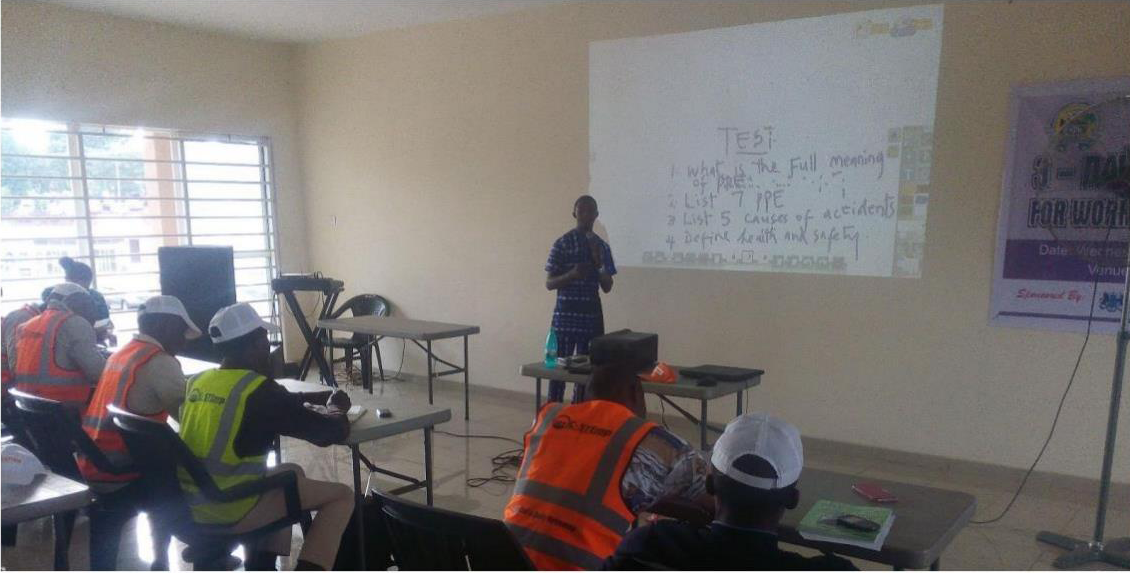 TEST
1. What is the Full meaning
of PPE
2. List 7 PPE
3 List 5 causes of accidents
4 Define health and safety.
3 - DAY
FOR WORK
Date: Wednes
Venue
Sponsored By: